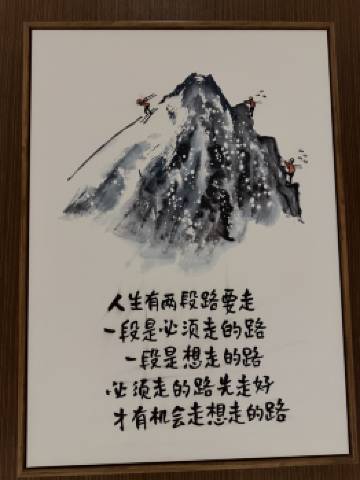 人生有两段路要走
一段是必须走的路
一段是想走的路
必须走的路先走好
才有机会走想走的路